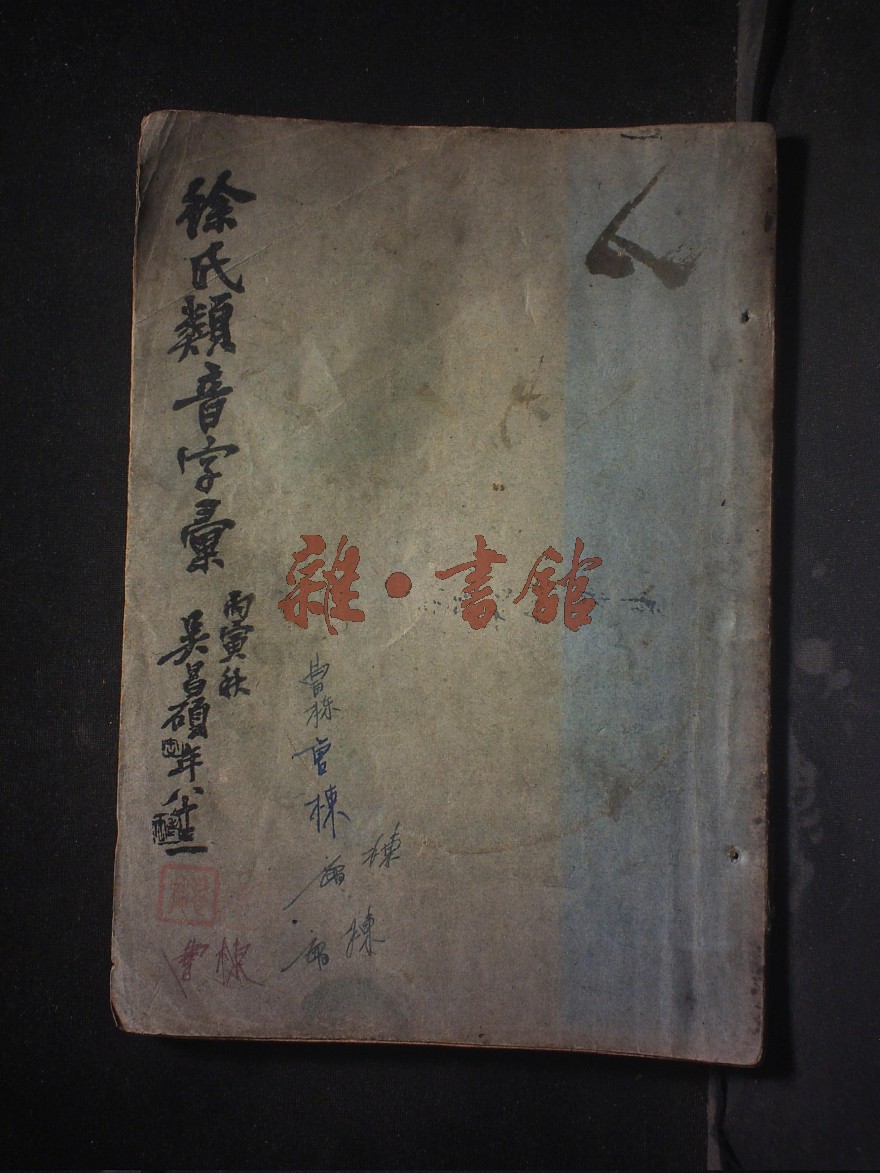 徐氏類音字彙
丙寅秋
吳昌碩年八十三
雜·書館
曹棟
曹棟
棟
棟
曹棟